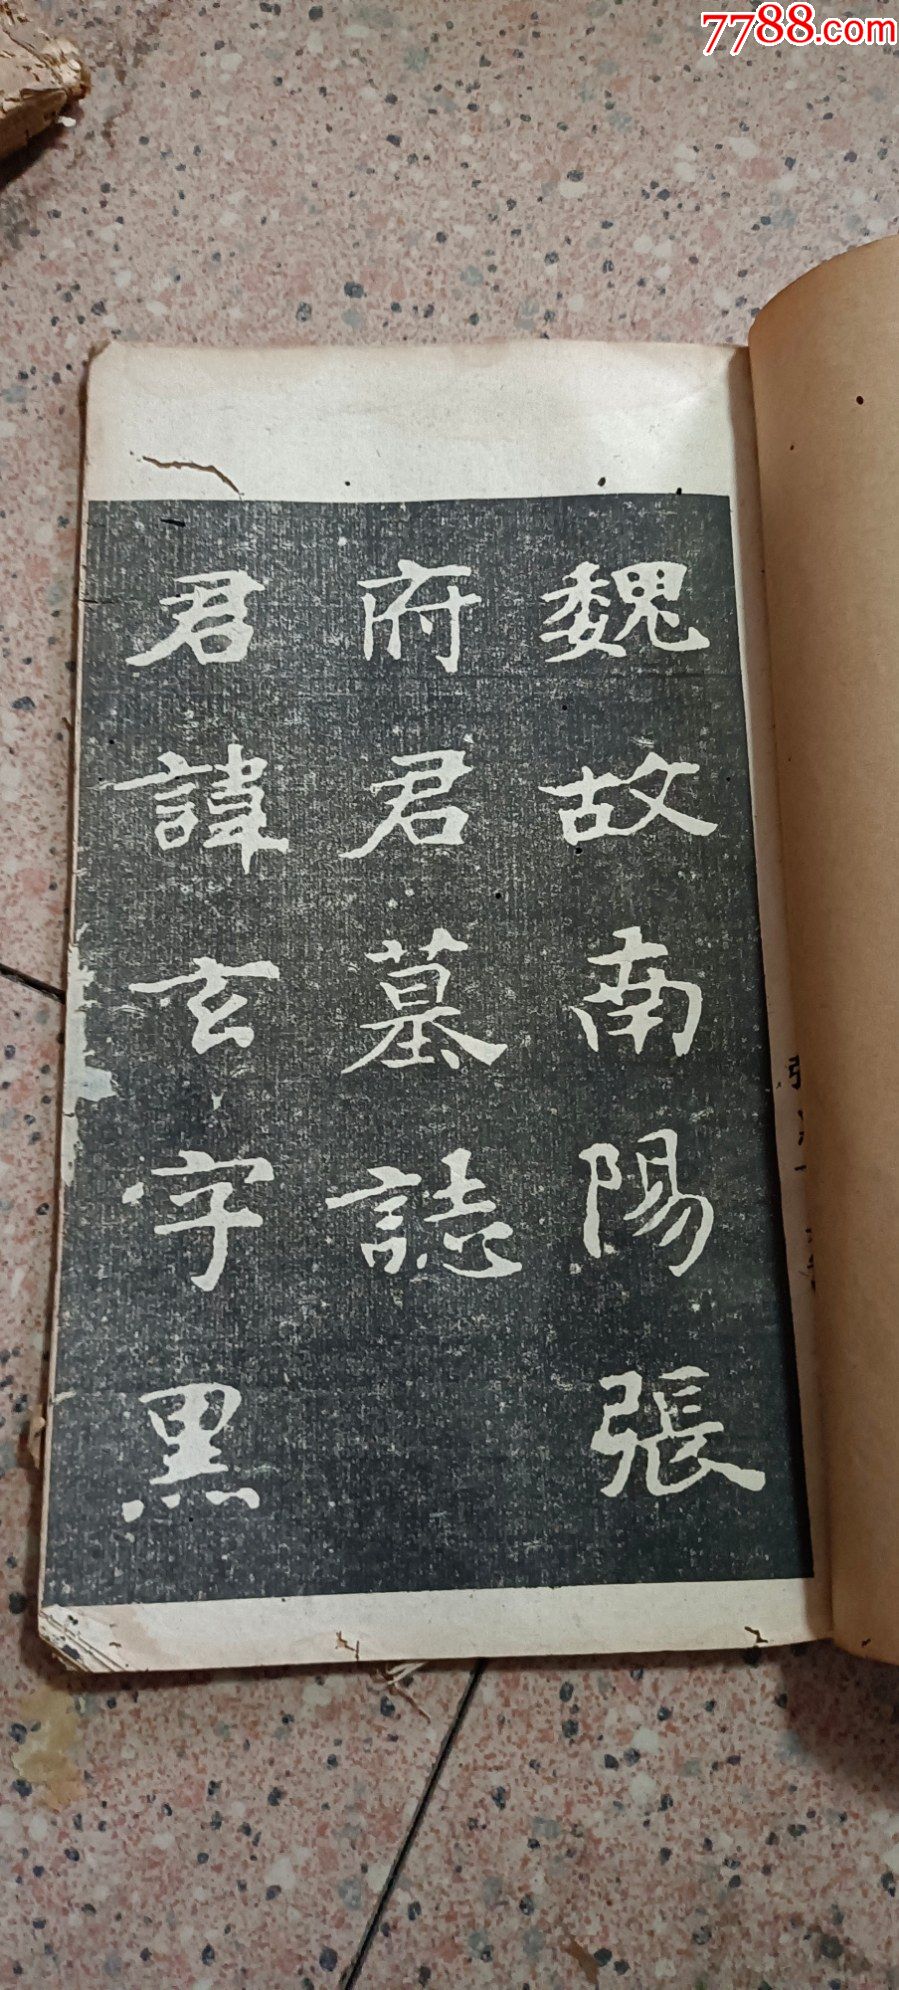 7788.com
魏故南陽張
府君墓誌
君諱玄字黑